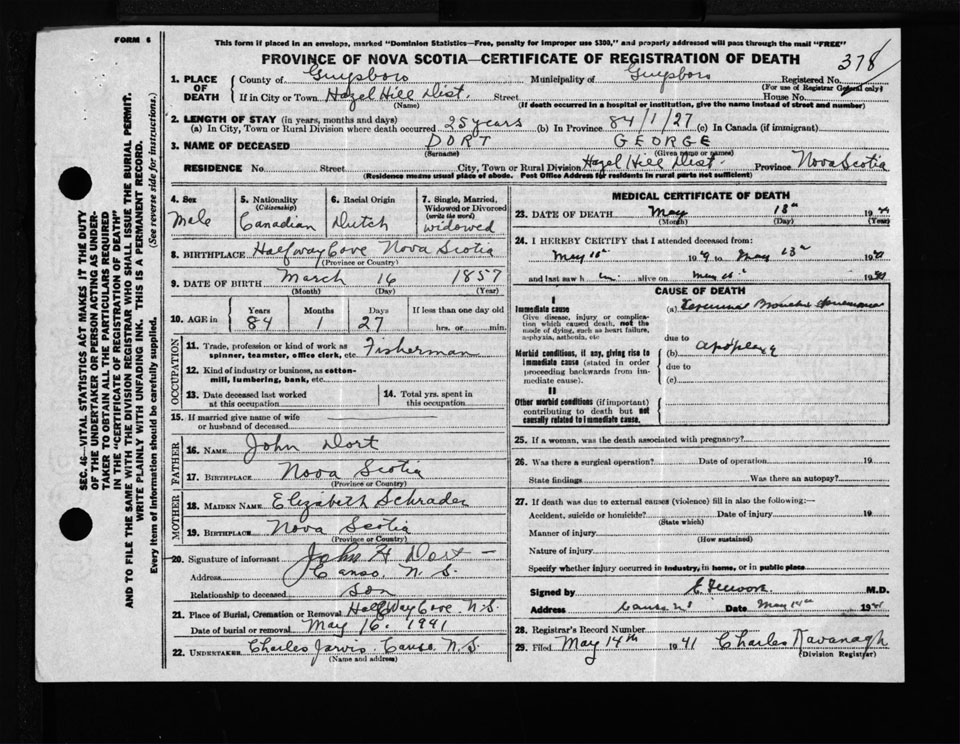 FORM 6
This form if placed in an envelope, marked "Dominion Statistics—Free, penalty for improper use $300," and properly addressed will pass through the mail "FREE"
PROVINCE OF NOVA SCOTIA—CERTIFICATE OF REGISTRATION OF DEATH
378
1. PLACE OF DEATH County of Guysboro Municipality of Guysboro Registered No.
(For use of Registrar General only)
If in City or Town Hazel Hill Dist. Street House No.
(Name) (If death occurred in a hospital or institution, give the name instead of street and number)
2. LENGTH OF STAY (in years, months and days)
(a) In City, Town or Rural Division where death occurred 25 years (b) In Province 84/1/27 (c) In Canada (if immigrant)
3. NAME OF DECEASED DORT GEORGE
(Surname) (Given name or names)
RESIDENCE No. Street City, Town or Rural Division Hazel Hill Dist. Province Nova Scotia
(Residence means usual place of abode. Post Office Address for residents in rural parts not sufficient)
4. Sex Male
5. Nationality (Citizenship) Canadian
6. Racial Origin Dutch
7. Single, Married, Widowed or Divorced (write the word) widowed
8. BIRTHPLACE Halfway Cove Nova Scotia
(Province or Country)
9. DATE OF BIRTH March 16 1857
(Month) (Day) (Year)
10. AGE in Years Months Days If less than one day old
84 1 27 hrs. or min.
OCCUPATION
11. Trade, profession or kind of work as spinner, teamster, office clerk, etc. Fisherman
12. Kind of industry or business, as cotton-mill, lumbering, bank, etc.
13. Date deceased last worked at this occupation
14. Total yrs. spent in this occupation
15. If married give name of wife or husband of deceased
FATHER
16. NAME John Dort
17. BIRTHPLACE Nova Scotia
(Province or Country)
MOTHER
18. MAIDEN NAME Elizabeth Schrader
19. BIRTHPLACE Nova Scotia
(Province or Country)
20. Signature of informant John H Dort
Address Canso, N.S.
Relationship to deceased son
21. Place of Burial, Cremation or Removal Half Way Cove N.S.
Date of burial or removal May 16. 1941
22. UNDERTAKER Charles Jarvis. Canso, N.S.
(Name and address)
MEDICAL CERTIFICATE OF DEATH
23. DATE OF DEATH May 13th 19
(Month) (Day)
24. I HEREBY CERTIFY that I attended deceased from:
May 19 to May 13th 19
and last saw h alive on May 19
CAUSE OF DEATH
I
Immediate cause
Give disease, injury or complication which caused death, not the mode of dying, such as heart failure, asphyxia, asthenia, etc
(a)
due to
Morbid conditions, if any, giving rise to immediate cause (stated in order proceeding backwards from immediate cause).
(b) apoplexy
due to
(c)
II
Other morbid conditions (if important) contributing to death but not causally related to immediate cause.
25. If a woman, was the death associated with pregnancy?
26. Was there a surgical operation? Date of operation 19
State findings Was there an autopsy?
27. If death was due to external causes (violence) fill in also the following:—
Accident, suicide or homicide? Date of injury 19
(State which)
Manner of injury
(How sustained)
Nature of injury
Specify whether injury occurred in industry, in home, or in public place
Signed by M.D.
Address Canso NS Date May 14th 1941
28. Registrar's Record Number
29. Filed May 14th 1941 Charles Kavanagh
(Division Registrar)
SEC. 46—VITAL STATISTICS ACT MAKES IT THE DUTY
OF THE UNDERTAKER OR PERSON ACTING AS UNDER-
TAKER TO OBTAIN ALL THE PARTICULARS REQUIRED
IN THE "CERTIFICATE OF REGISTRATION OF DEATH"
AND TO FILE THE SAME WITH THE DIVISION REGISTRAR WHO SHALL ISSUE THE BURIAL PERMIT.
WRITE PLAINLY WITH UNFADING INK. THIS IS A PERMANENT RECORD.
Every item of information should be carefully supplied. (See reverse side for instructions.)